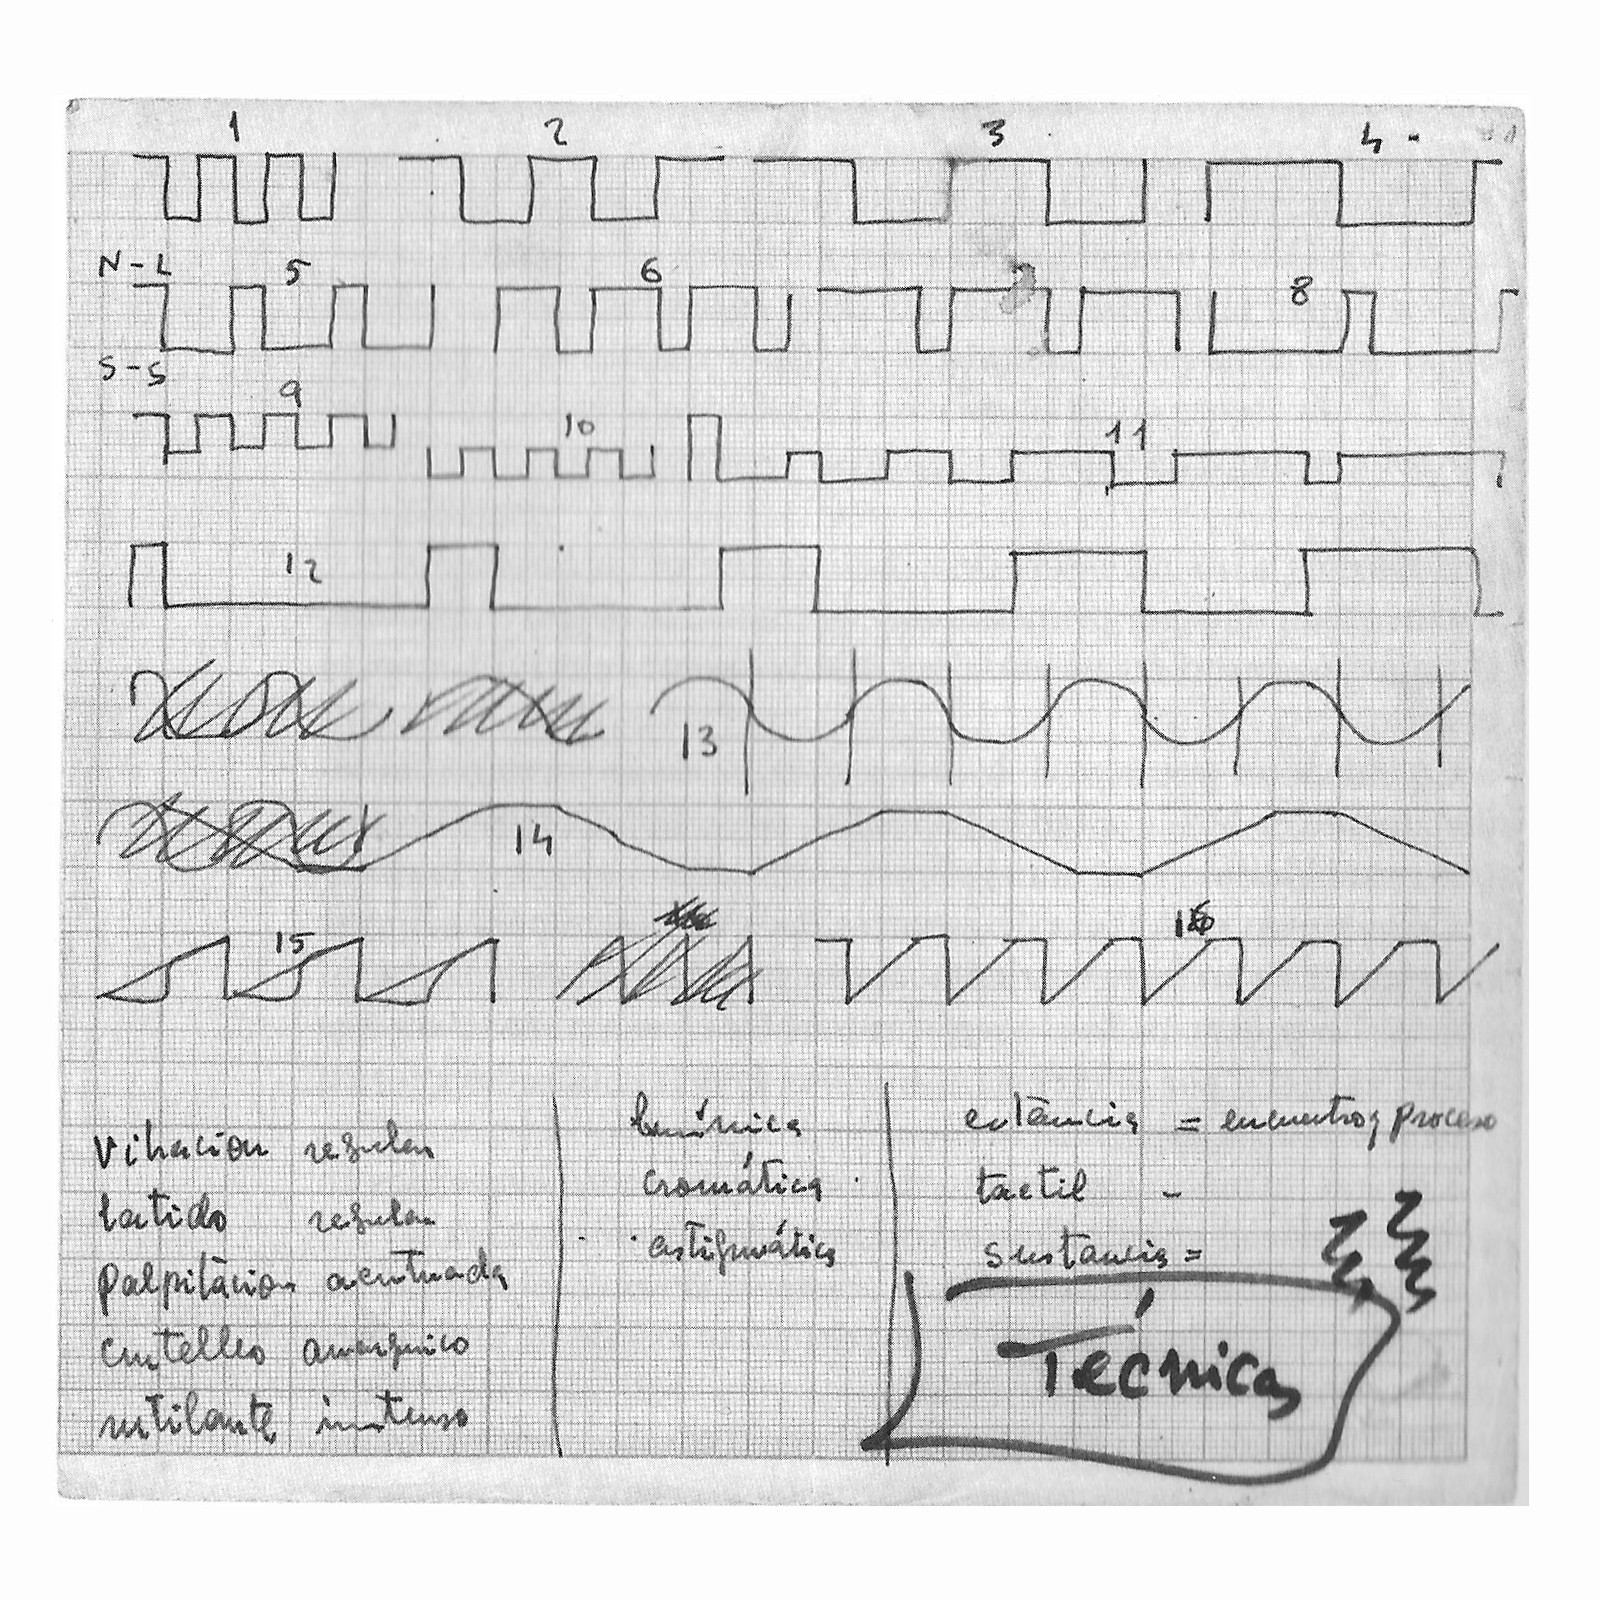 1 2 3 4 -
N-L 5 6 7 8
S-S
9 10 11
12
13
14
15 16
Vibración regular
latido regular
Palpitación acentuada
centelleo anarquico
rutilante intenso
lumínica
cromática
astigmática
estáncia = encuentro y proceso
tactil -
sustancia =
Técnicas